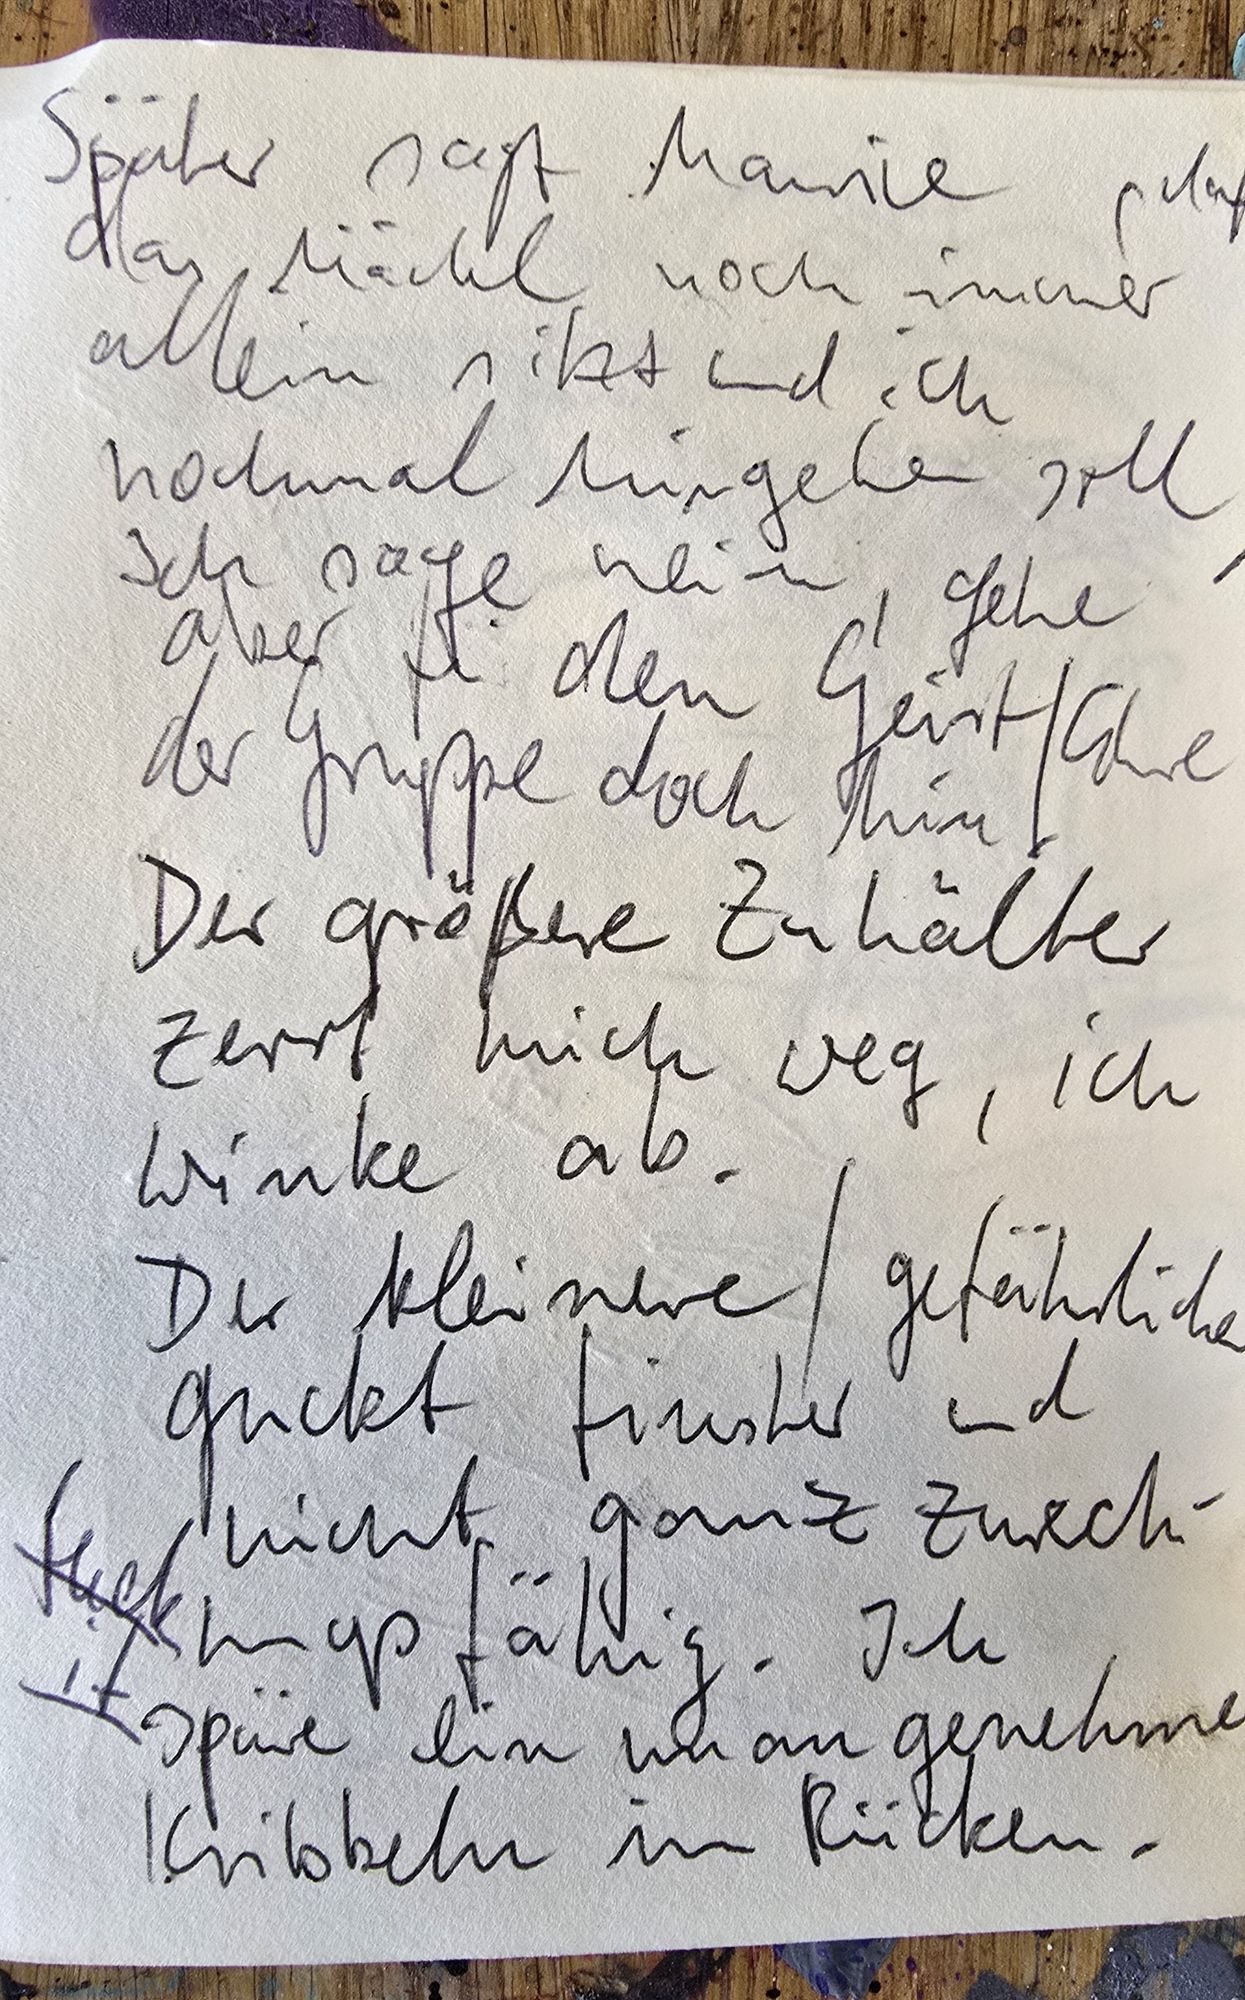 Später sagt Maurice, daß
das Mädel noch immer
allein sitzt und ich
nochmal hingehen soll,
Ich sage nein, gehe
aber f. den Geist/Ehre
der Gruppe doch hin!
Der größere Zuhälter
zerrt mich weg, ich
winke ab.
Der kleinere/gefährliche
guckt finster und
nicht ganz zurech-
nungsfähig. Ich
fuck
it
spüre ein unangenehme
Kribbeln im Rücken.